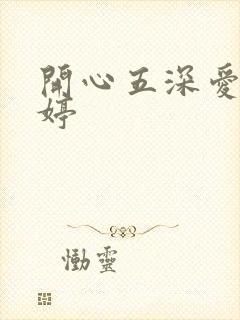 開心五深愛
婷
慟靈